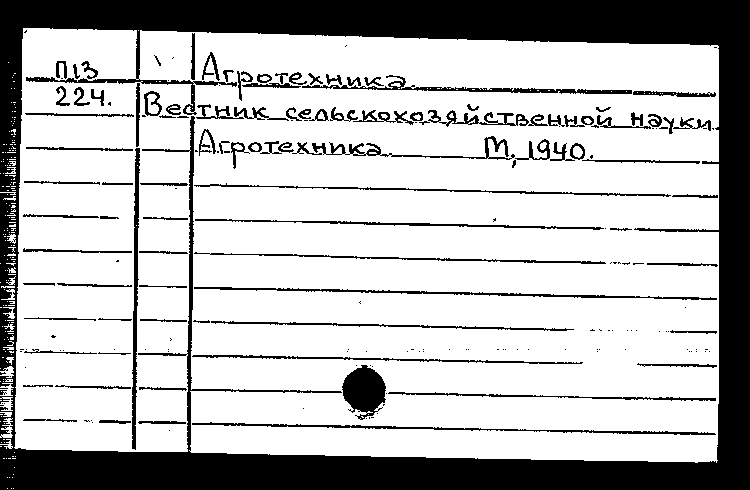 П13 Агротехника
224. Вестник сельскохозяйственной науки
Агротехника М, 1940.